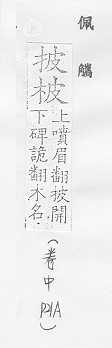 佩觿
披柀
上噴眉翻披開
下碑詭翻木名
(卷中